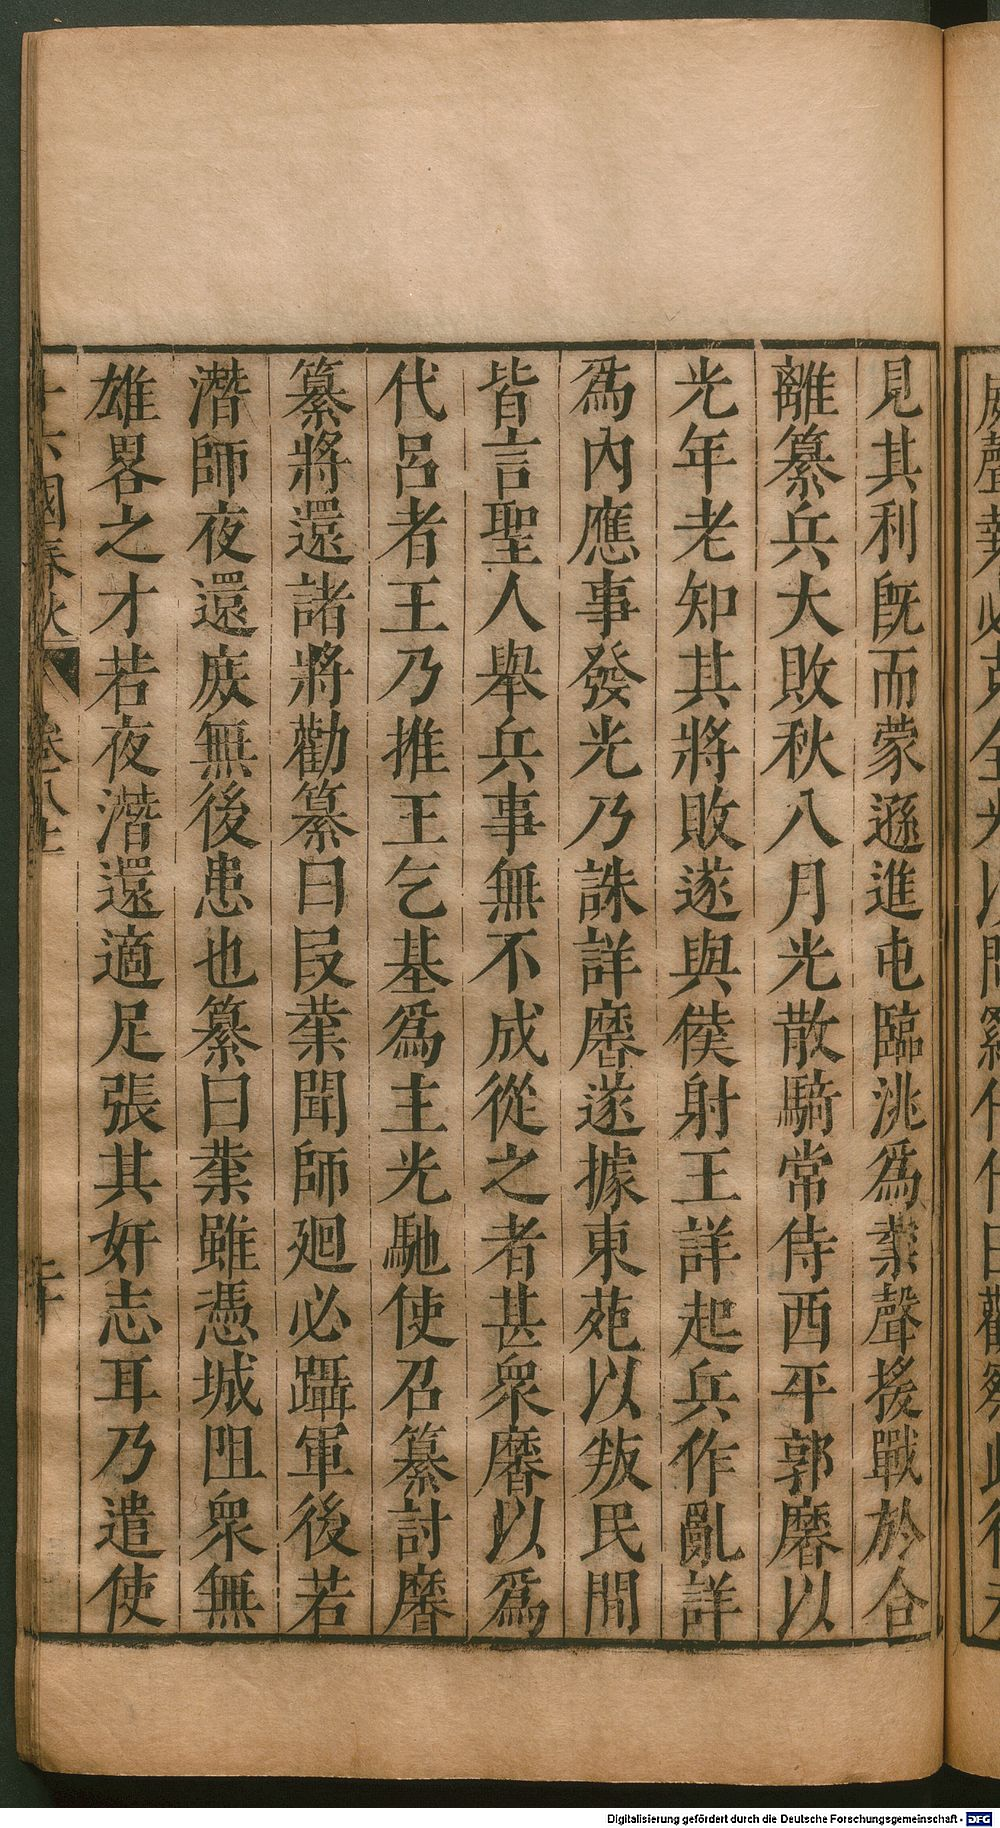 見其利既而蒙遜進屯臨洮爲業聲援戰於合
離纂兵大敗秋八月光散騎常侍西平郭黁以
光年老知其將敗遂與僕射王詳起兵作亂詳
爲內應事發光乃誅詳黁遂據東苑以叛民間
皆言聖人舉兵事無不成從之者甚衆黁以爲
代呂者王乃推王乞基爲主光馳使召纂討黁
纂將還諸將勸纂曰叚業聞師廻必躡軍後若
潛師夜還庻無後患也纂曰業雖憑城阻衆無
雄畧之才若夜潛還適足張其奸志耳乃遣使
十六國春秋 卷八十一 二十
Digitalisierung gefördert durch die Deutsche Forschungsgemeinschaft - DFG